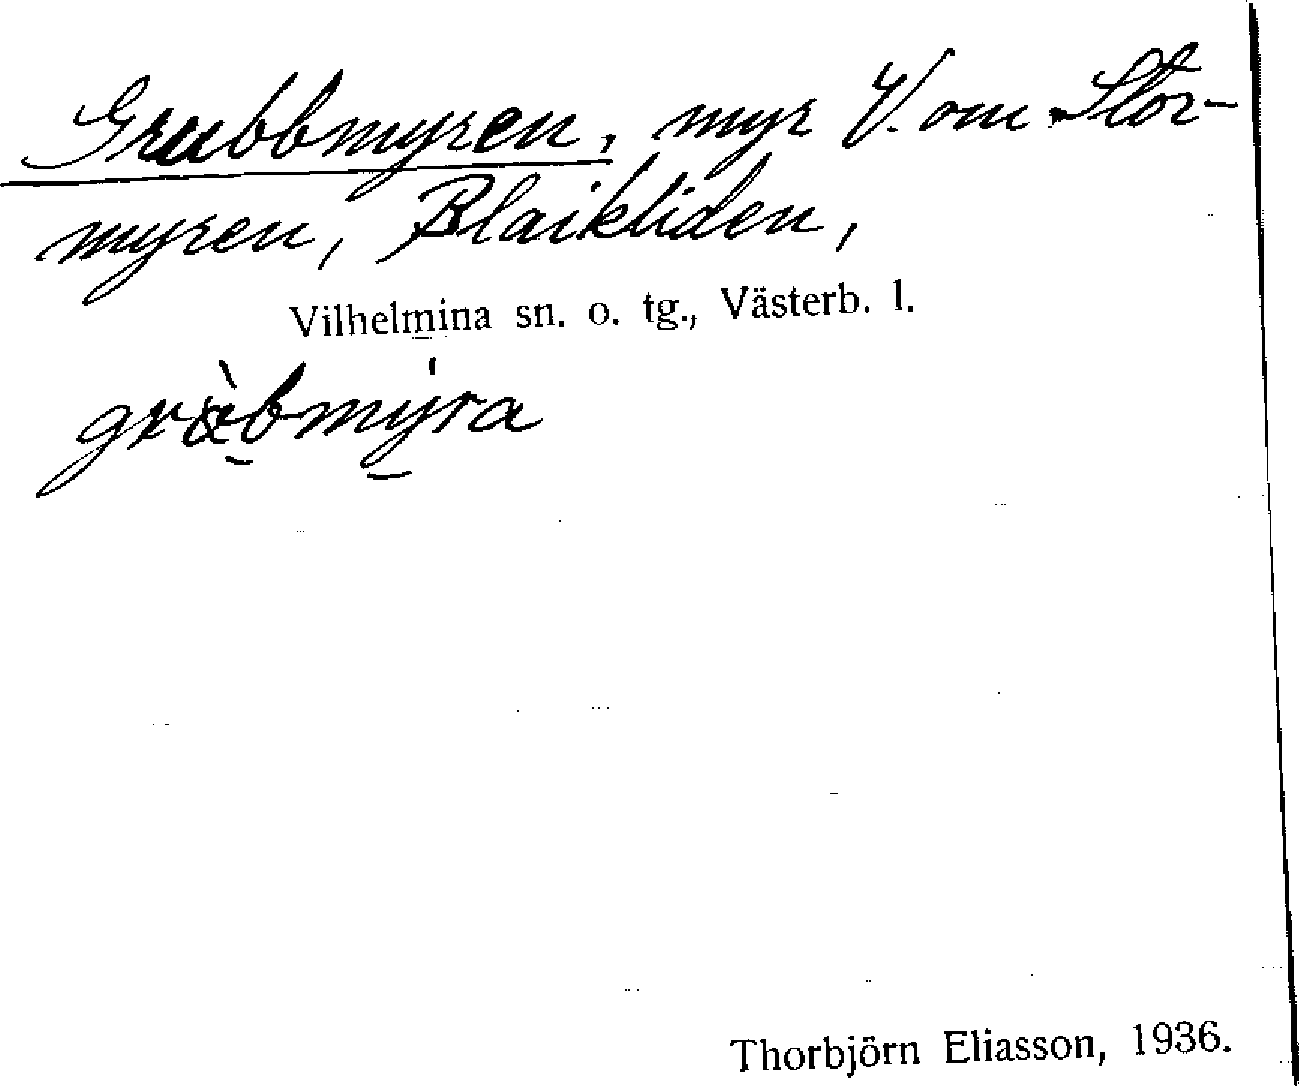 Grubbmyren, myr V. om Stor-
myren, Blaikliden,
Vilhelmina sn. o. tg., Västerb. l.
Thorbjörn Eliasson, 1936.